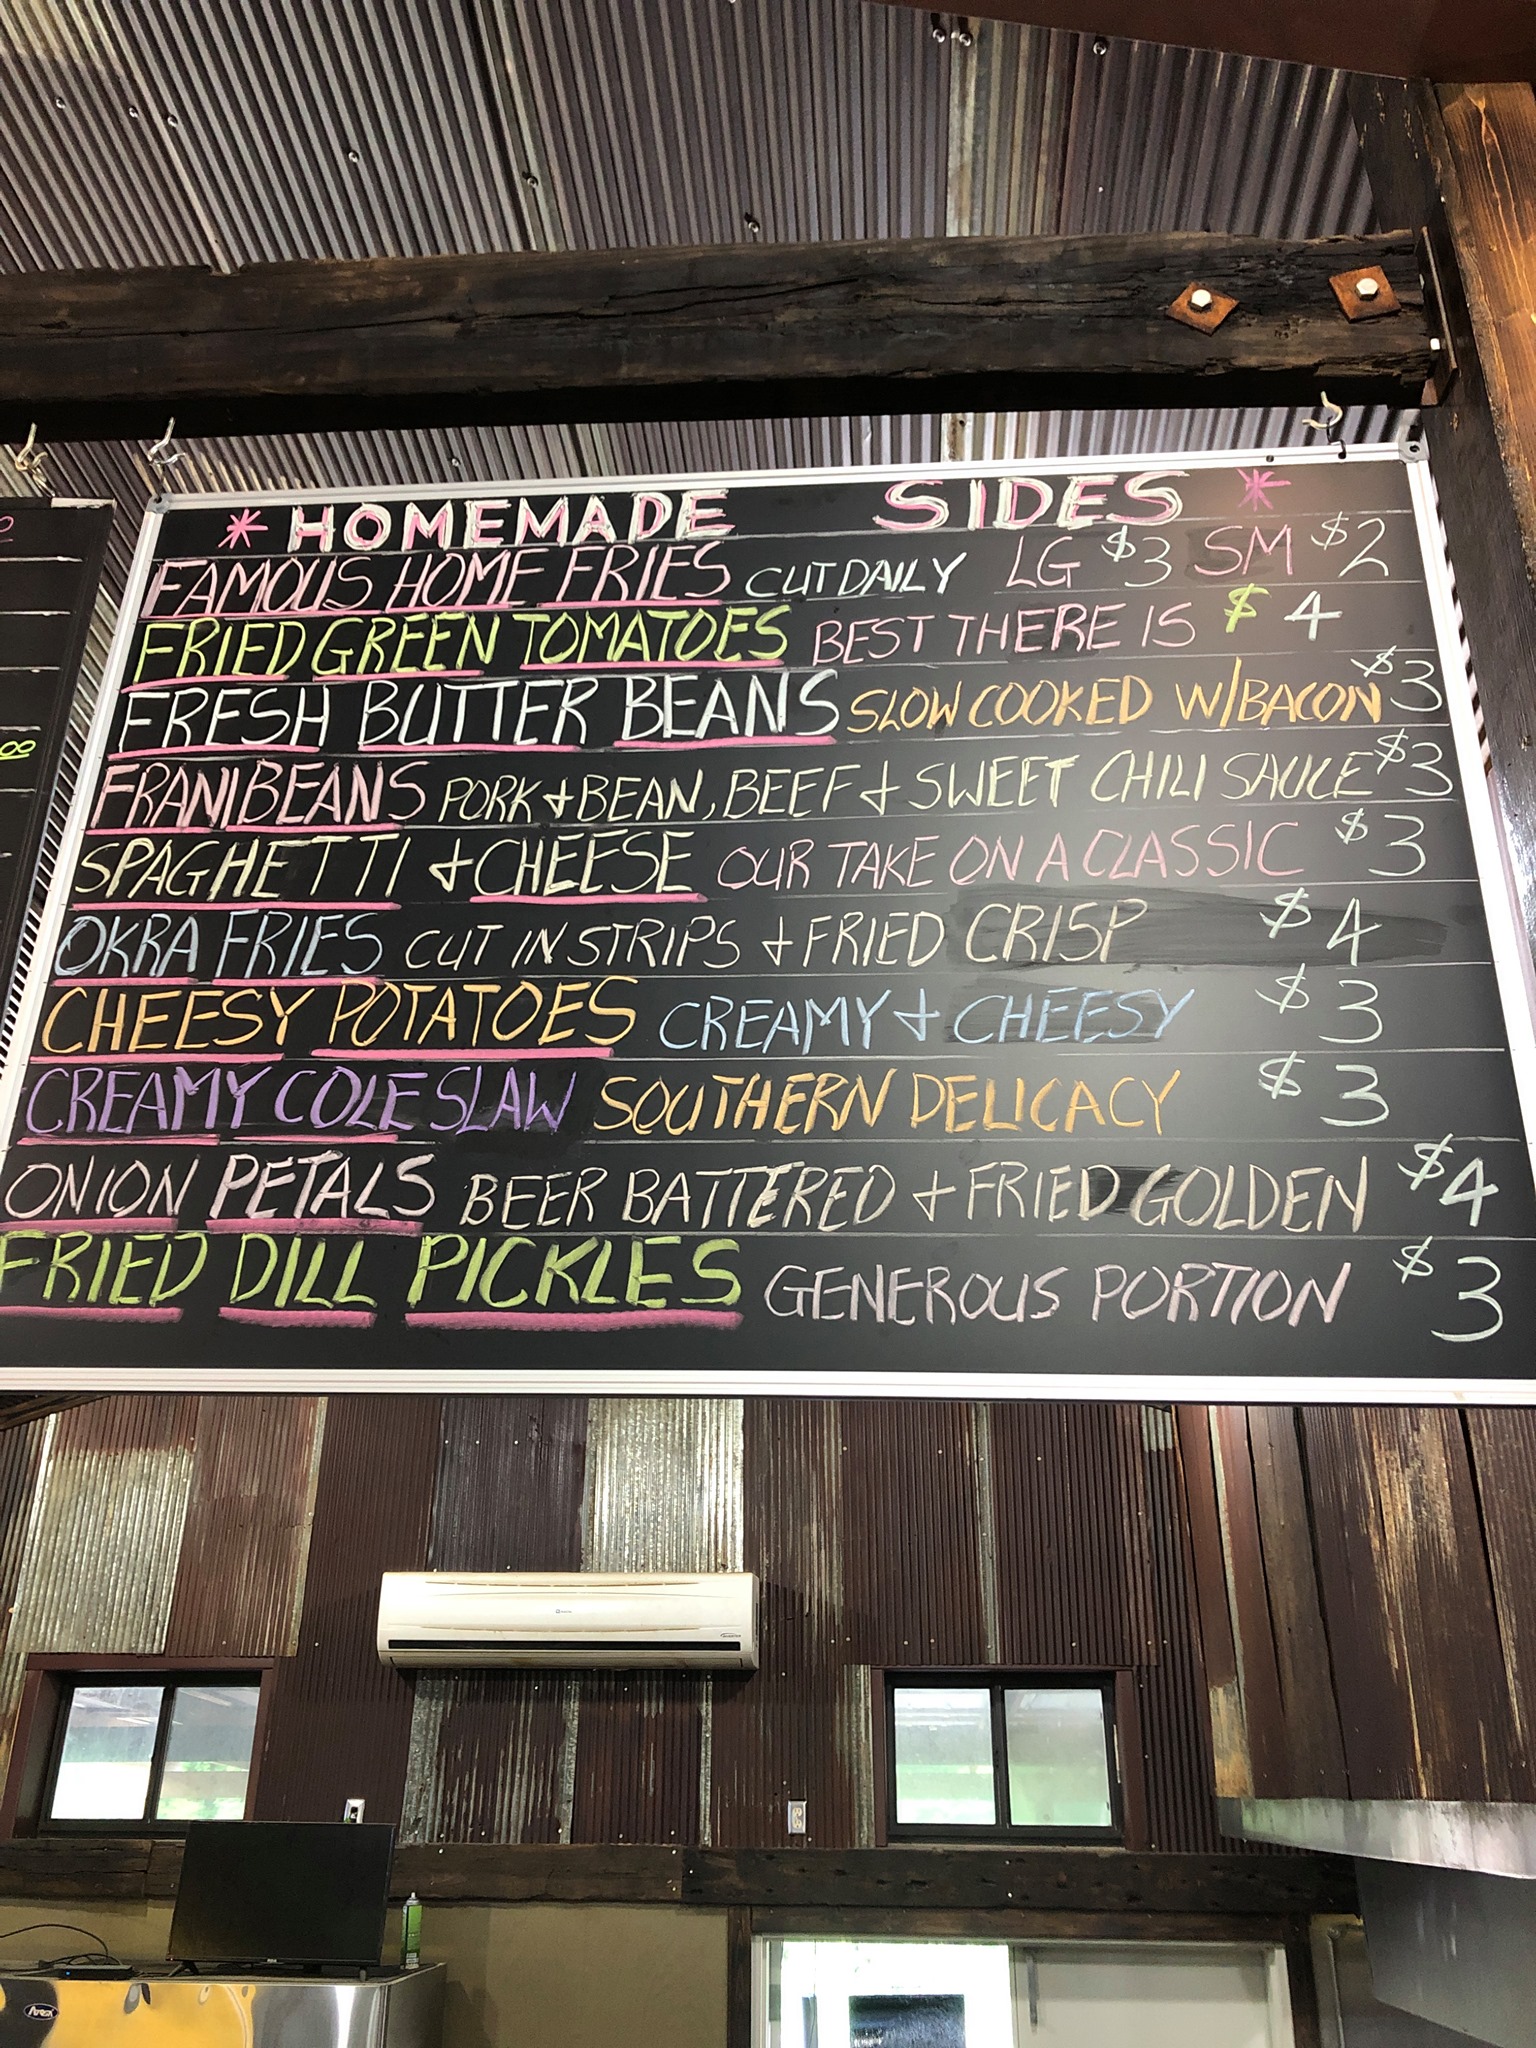 * HOMEMADE SIDES *
FAMOUS HOME FRIES CUT DAILY LG $3 SM $2
FRIED GREEN TOMATOES BEST THERE IS $4
FRESH BUTTER BEANS SLOW COOKED W/BACON $3
FRANIBEANS PORK & BEAN, BEEF & SWEET CHILI SAUCE $3
SPAGHETTI & CHEESE OUR TAKE ON A CLASSIC $3
OKRA FRIES CUT IN STRIPS & FRIED CRISP $4
CHEESY POTATOES CREAMY & CHEESY $3
CREAMY COLE SLAW SOUTHERN DELICACY $3
ONION PETALS BEER BATTERED & FRIED GOLDEN $4
FRIED DILL PICKLES GENEROUS PORTION $3
00
Arctic